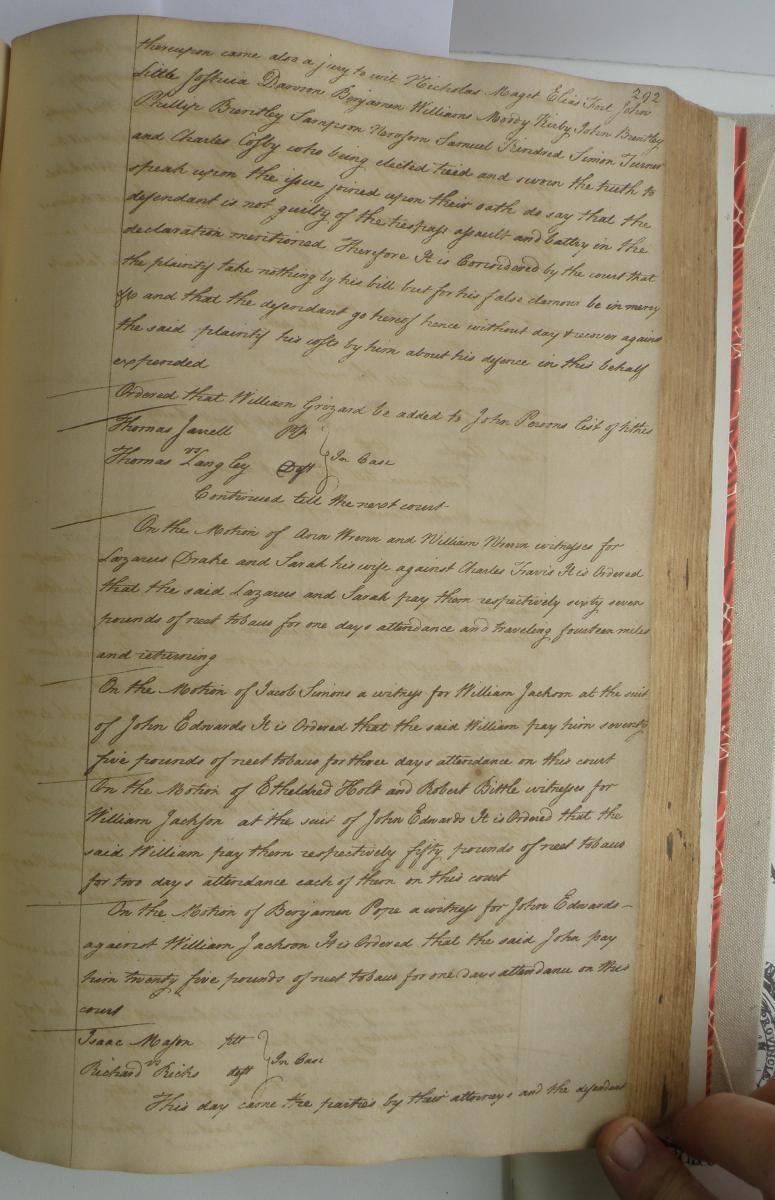 292
thereupon came also a jury to wit Nicholas Maget Elias Fort John
Little Joshua Dawson Benjamen Williams Moody Kirby John Brentley
Phillip Brentley Sampson Newsom Samuel Kindred Simon Turner
and Charles Cosby who being elected tried and sworn the truth to
speak upon the issue joined upon their oath do say that the
defendant is not guilty of the trespass assault and battry in the
declaration mentioned Therefore It is Considered by the court that
the plaintif take nothing by his bill but for his false clamour be in mercy
&c and that the defendant go hereof hence without day & recover against
the said plaintif his costs by him about his defence in this behalf
expended
Ordered that William Grizard be added to John Persons list of tithes
Thomas Jarrell Plt
vs
Thomas Langley Deft
In Case
Continued tell the next court
On the Motion of Ann Wrenn and William Wrenn witnesses for
Lazarus Drake and Sarah his wife against Charles Travis It is Ordered
that the said Lazarus and Sarah pay them respectively sixty seven
pounds of neet tobaco for one days attendance and traveling fourteen miles
and returning
On the Motion of Jacob Simons a witness for William Jackson at the suit
of John Edwards It is Ordered that the said William pay him seventy
five pounds of neet tobaco for three days attendance on this court
On the Motion of Etheldred Holt and Robert Bittle witnesses for
William Jackson at the suit of John Edwards It is Ordred that the
said William pay them respectively fifty pounds of neet tobaco
for two days attendance each of them on this court
On the Motion of Benjamen Pope a witness for John Edwards
against William Jackson It is Ordered that the said John pay
him twenty five pounds of neet tobaco for one days attendance on this
court
Isaac Mason plt
vs
Richard Ricks deft
In Case
This day came the parties by their attorneys and the defendant